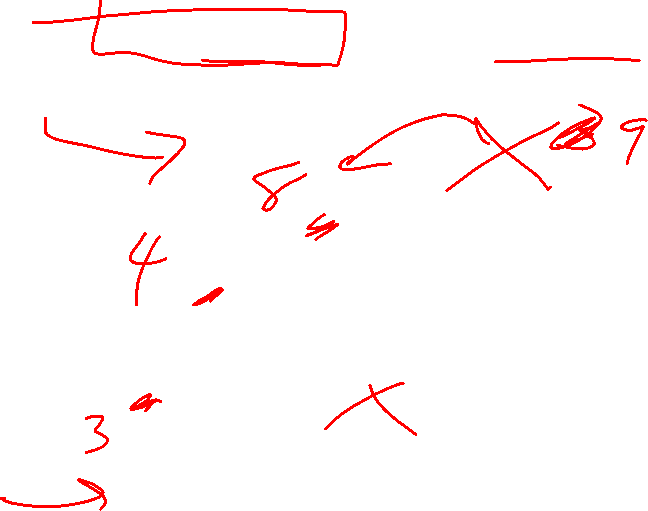 9
8
4
3